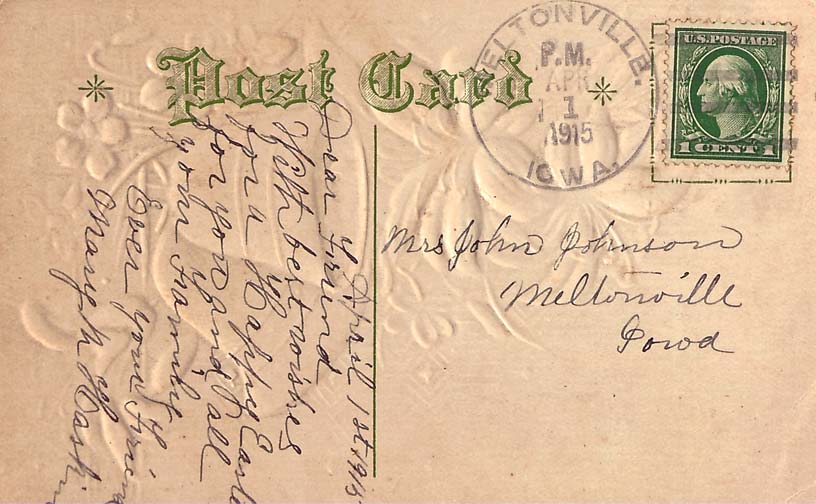 Post Card
ELTONVILLE.
P.M.
APR
1
1915
IOWA.
U.S. POSTAGE
1 CENT 1
Mrs John Johnson
Meltonville
Iowa
April 1st 1915
Dear Friend
With best wishes
for a Happy Easte
for you and all
your Family
Ever your Frien